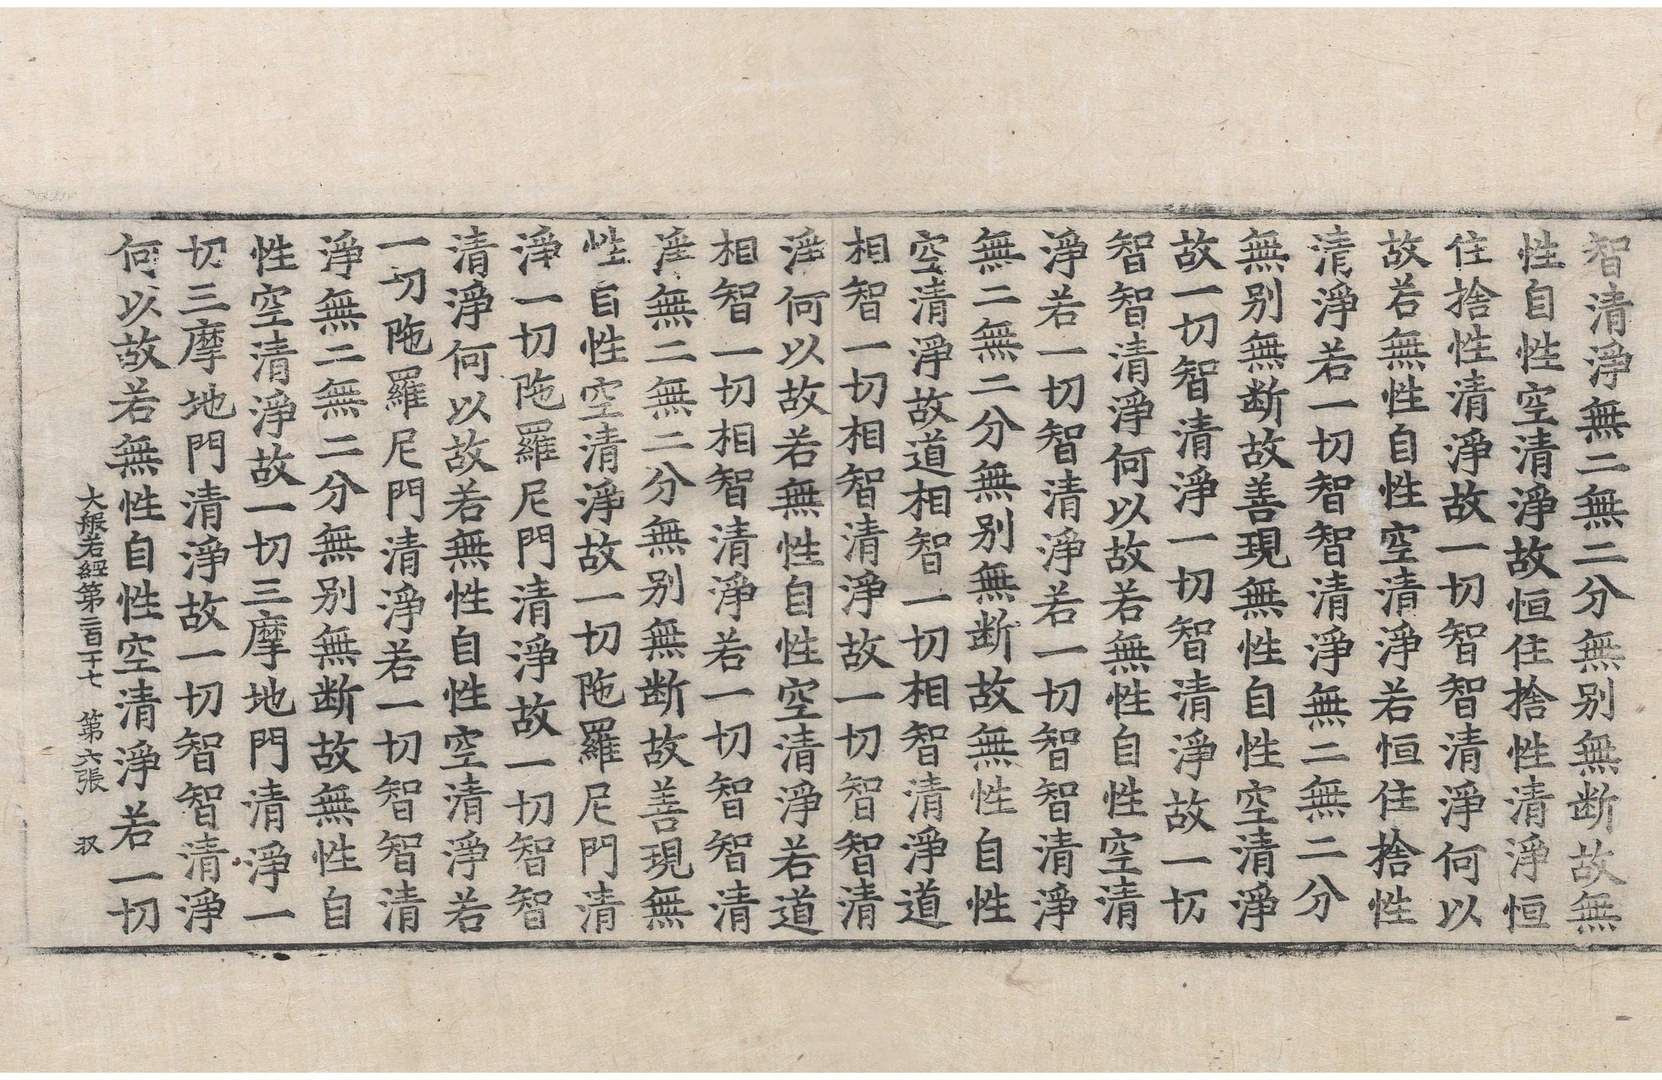 智清淨無二無二分無別無断故無
性自性空清淨故恒住捨性清淨恒
住捨性清淨故一切智智清淨何以
故若無性自性空清淨若恒住捨性
清淨若一切智智清淨無二無二分
無別無断故善現無性自性空清淨
故一切智清淨一切智清淨故一切
智智清淨何以故若無性自性空清
淨若一切智清淨若一切智智清淨
無二無二分無別無断故無性自性
空清淨故道相智一切相智清淨道
相智一切相智清淨故一切智智清
淨何以故若無性自性空清淨若道
相智一切相智清淨若一切智智清
淨無二無二分無別無断故善現無
性自性空清淨故一切陁羅尼門清
淨一切陁羅尼門清淨故一切智智
清淨何以故若無性自性空清淨若
一切陁羅尼門清淨若一切智智清
淨無二無二分無別無断故無性自
性空清淨故一切三摩地門清淨一
切三摩地門清淨故一切智智清淨
何以故若無性自性空清淨若一切
大般若經第二百十七 第六張 㕛